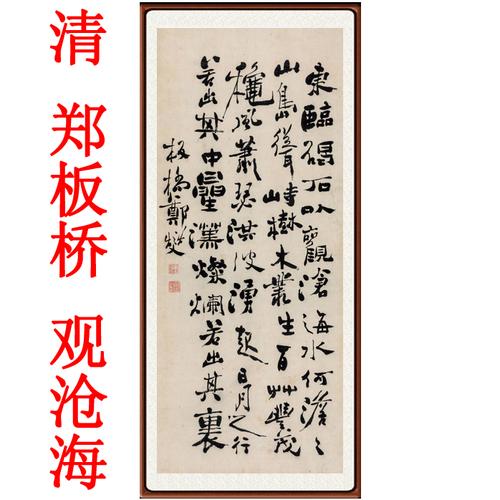 清 郑板桥 观沧海
東臨碣石以觀滄海水何澹〻
山島聳峙樹木叢生百艸豐茂
穐風蕭瑟洪波湧起日月之行
若出其中曐漢燦爛若出其裏
板橋鄭燮